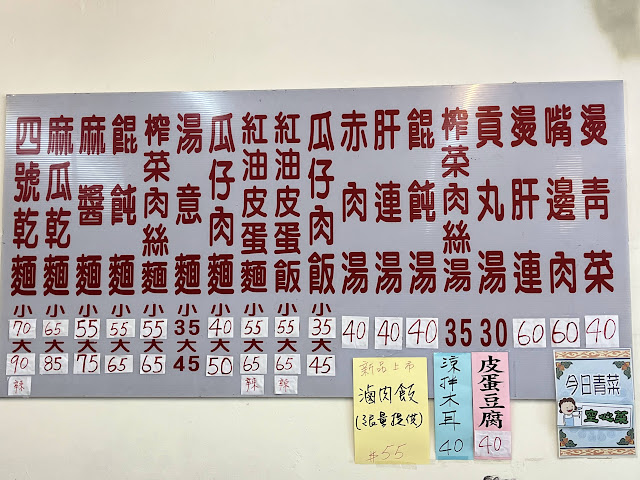 四號乾麵小70大90辣
麻瓜乾麵小65大85
麻醬麵小55大75
餛飩麵小55大65
榨菜肉絲麵小55大65
湯意麵小35大45
瓜仔肉麵小40大50
紅油皮蛋麵小55大65辣
紅油皮蛋飯小55大65辣
瓜仔肉飯小35大45
赤肉湯40
肝連湯40
餛飩湯40
榨菜肉絲湯35
貢丸湯30
燙肝連60
嘴邊肉60
燙青菜40
新品上市
滷肉飯
(限量提供)
$55
涼拌木耳40
皮蛋豆腐40
今日青菜
空心菜